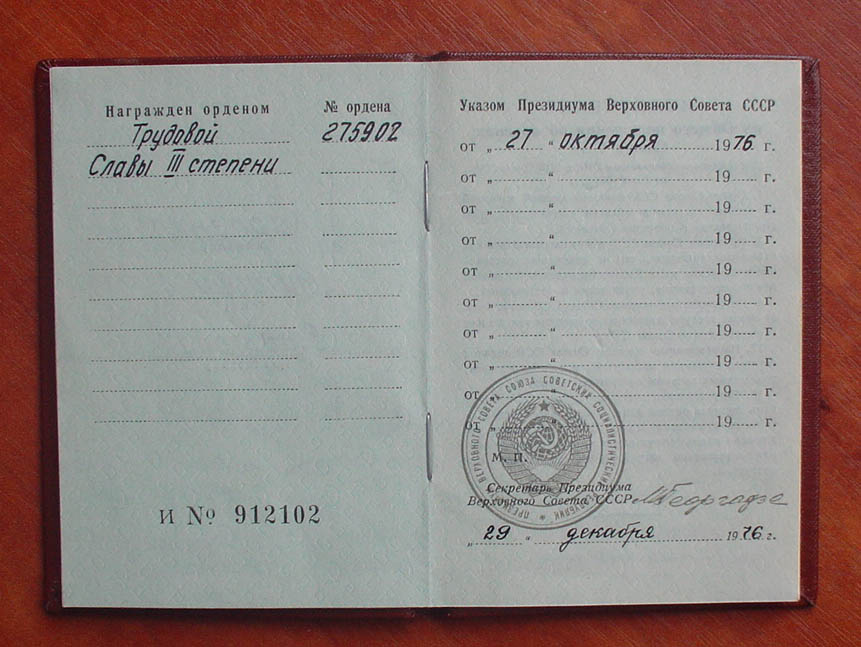 Награжден орденом
№ ордена
Трудовой
275902
Славы III степени
И № 912102
Указом Президиума Верховного Совета СССР
от „ 27 “ октября 1976 г.
от „ “ 19 г.
от „ “ 19 г.
от „ “ 19 г.
от „ “ 19 г.
от „ “ 19 г.
от „ “ 19 г.
от „ “ 19 г.
от „ “ 19 г.
от „ “ 19 г.
ПРЕЗИДИУМ ВЕРХОВНОГО СОВЕТА СОЮЗА СОВЕТСКИХ СОЦИАЛИСТИЧЕСКИХ РЕСПУБЛИК
М. П.
Секретарь Президиума
Верховного Совета СССР МГеоргадзе
„ 29 “ декабря 1976 г.